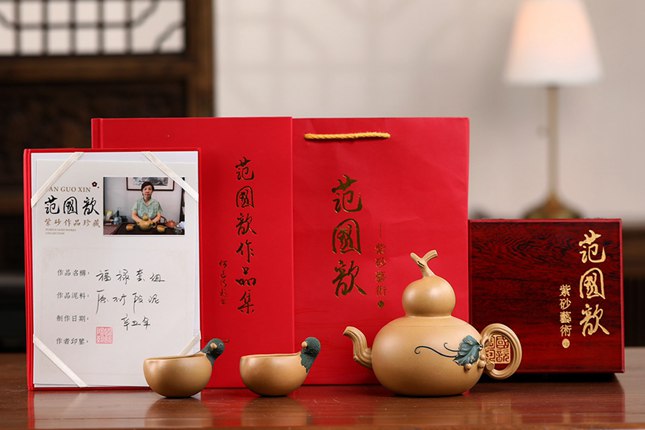 FAN GUO XIN
范國歆
紫砂作品珍藏
作品名稱:
福祿套组
作品泥料:
原矿段泥
制作日期:
辛丑年
作者印鑒:
范國歆作品集
范國歆
紫砂藝術
范國歆
紫砂藝術